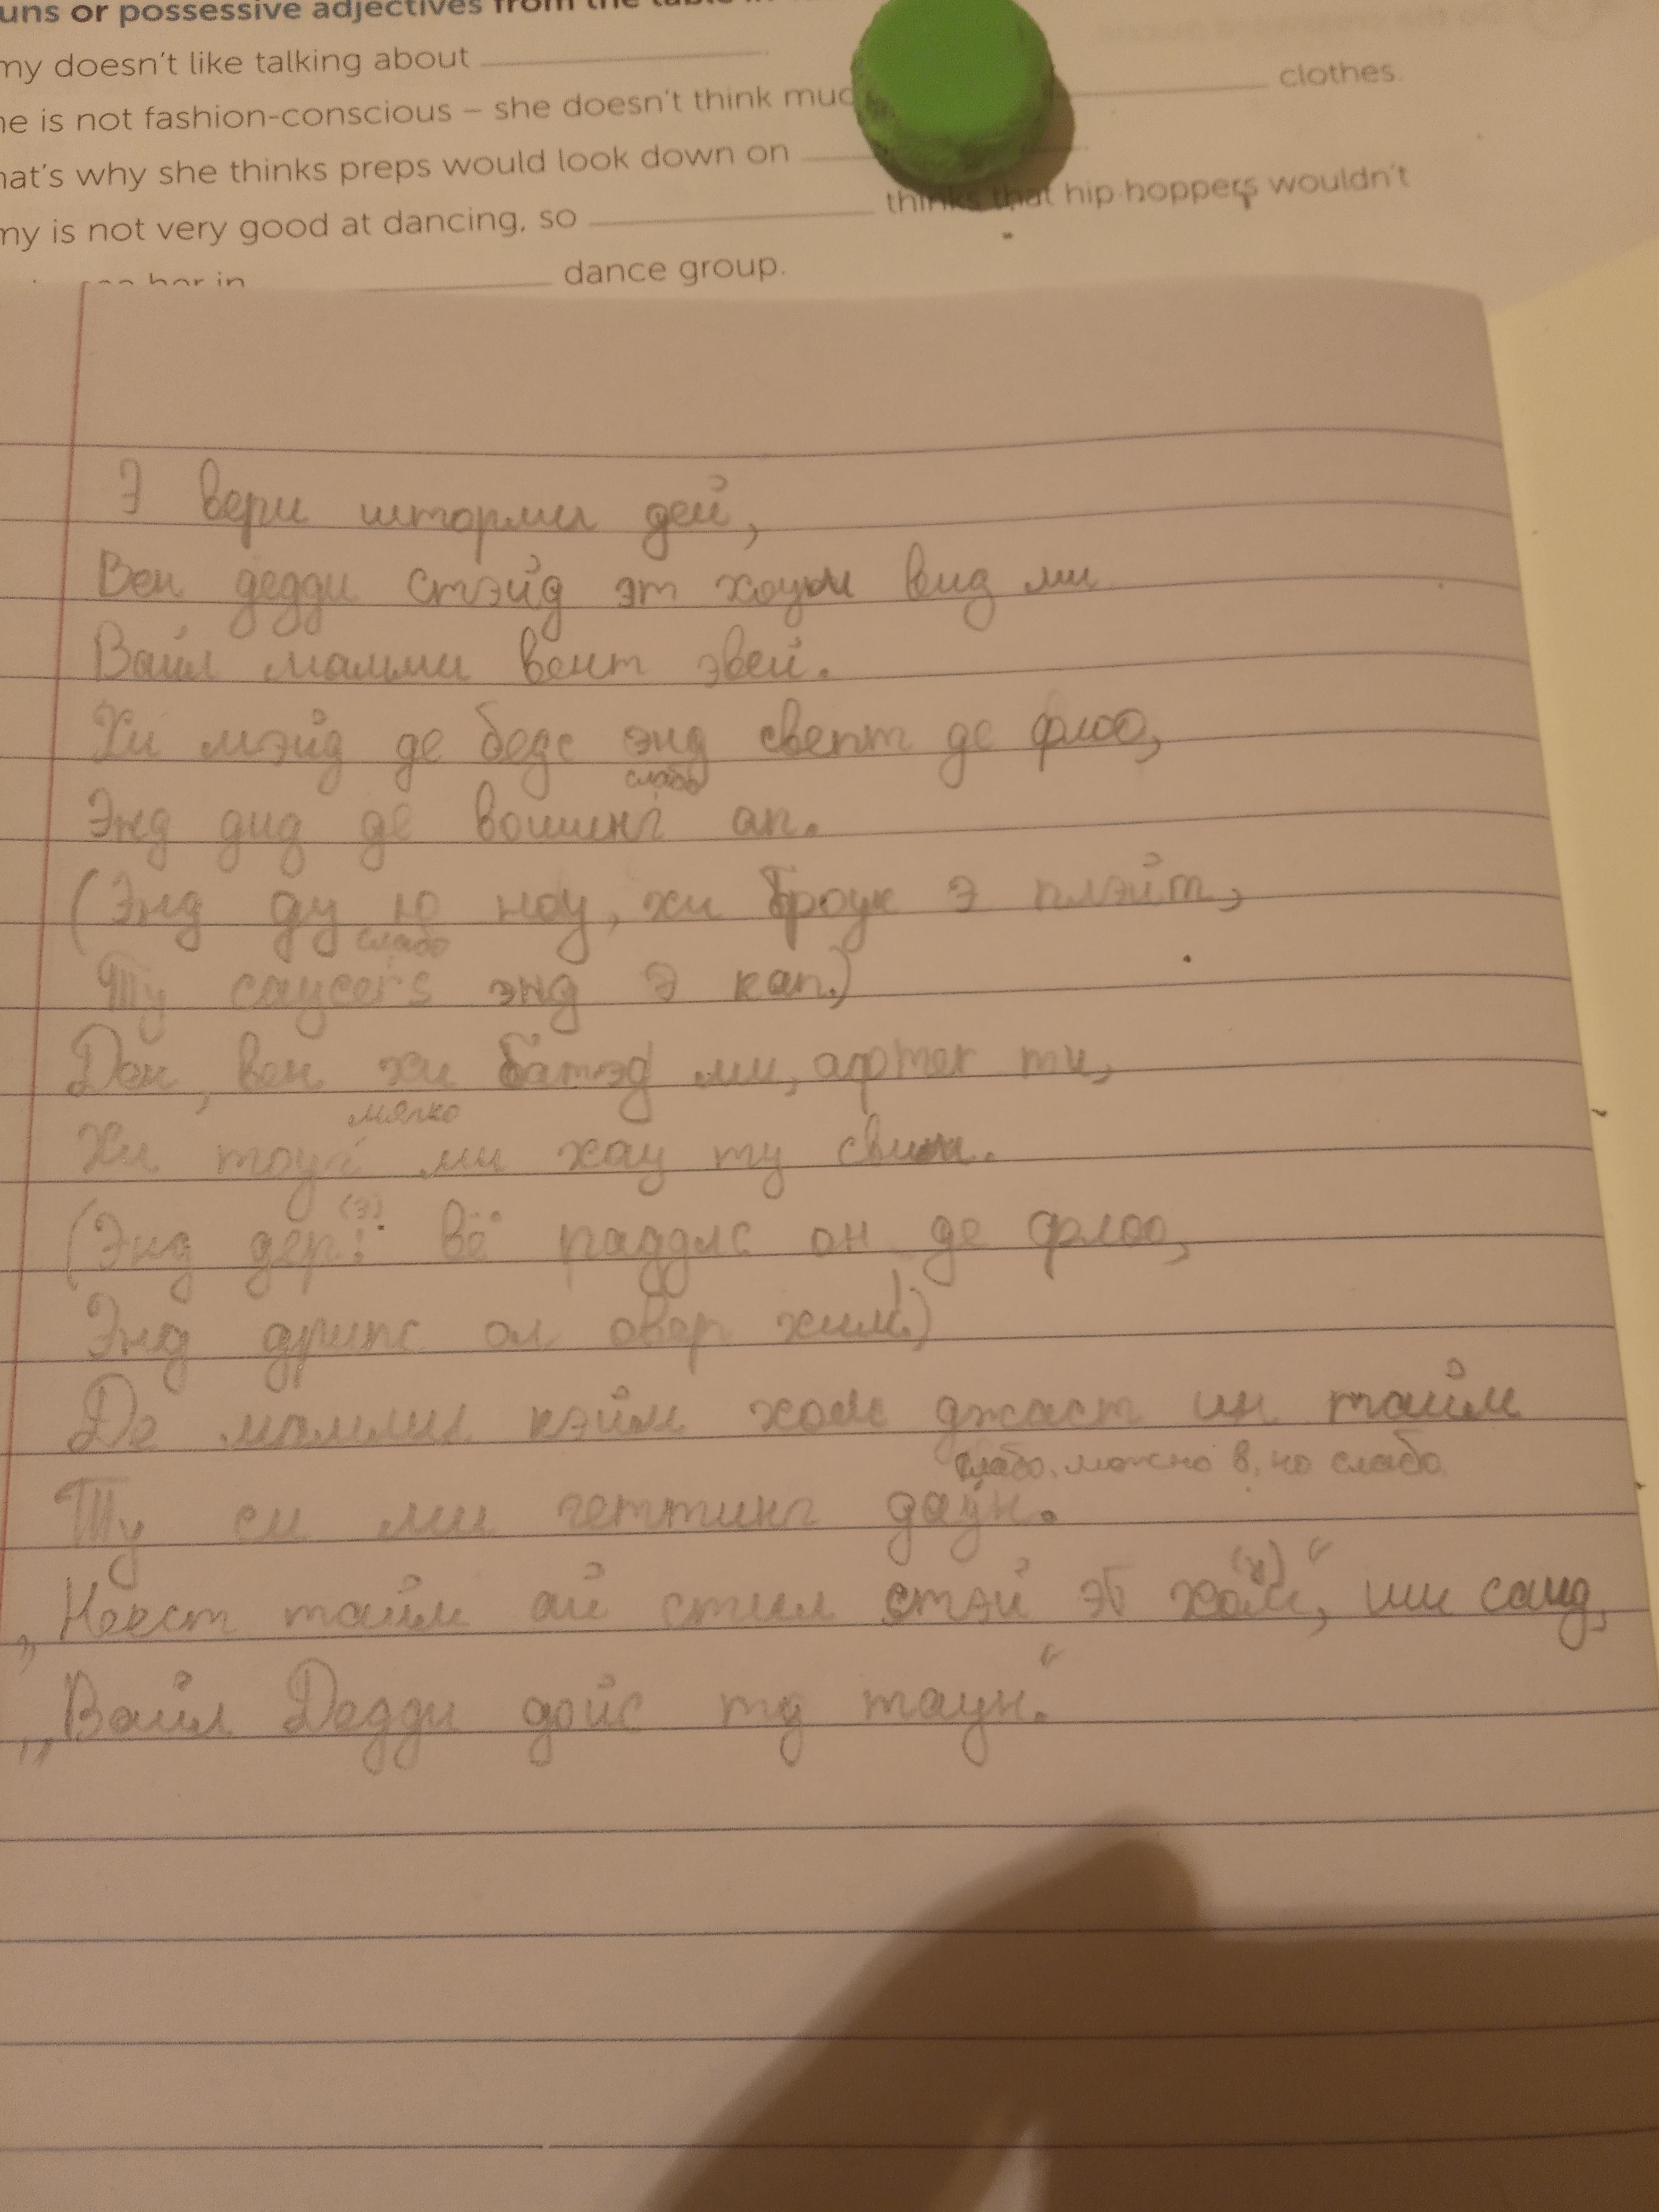 uns or possessive adjectives from the table in
my doesn't like talking about
he is not fashion-conscious – she doesn't think muc clothes.
hat's why she thinks preps would look down on
my is not very good at dancing, so thinks that hip hoppers wouldn't
her in dance group.
Э вери шторми дей,
Вен дедди стэйд эт хоум вид ми
Вайл мамми вент эвей.
Хи мэйд де бедс энд свепт де флоо,
слабо
Энд дид де вошинг ап.
(Энд ду ю ноу, хи броук э плэйт,
слабо
Ту саусеrs энд э кап.)
Ден, вен хи батэд ми, афтег ти,
мягко
Хи тоуг ми хау ту свим.
(э)
(Энд дер: вё паддлс он де флоо,
Энд дрипс ол овер хим!)
Де мамми кэйм хом джаст ин тайм
слабо, можно в, но слабо
Ту си ми геттинг даун.
(у)
„Некст тайм ай стил стэй эт хом“, ши саид,
„Вайл Дедди дойс ту таун.“